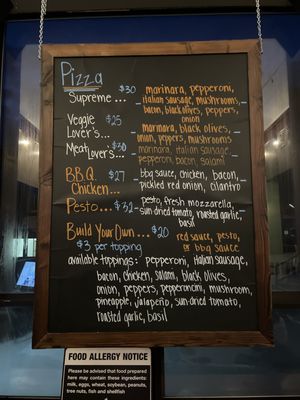 Pizza
Supreme... $30 marinara, pepperoni,
italian sausage, mushrooms,
bacon, black olives, peppers,
onion
Veggie $25
Lover's... marinara, black olives,
onion, peppers, mushrooms
Meat Lover's... $30 marinara, italian sausage
pepperoni, bacon, salami
B.B.Q. $27 bbq sauce, chicken, bacon,
Chicken... pickled red onion, cilantro
Pesto... $32 pesto, fresh mozzarella,
sun-dried tomato, roasted garlic,
basil
Build Your Own... $20
$3 per topping
red sauce, pesto,
or bbq sauce
available toppings: pepperoni, italian sausage,
bacon, chicken, salami, black olives,
onion, peppers, pepperoncini, mushroom,
pineapple, jalapeño, sun-dried tomato,
roasted garlic, basil
FOOD ALLERGY NOTICE
Please be advised that food prepared
here may contain these ingredients:
milk, eggs, wheat, soybean, peanuts,
tree nuts, fish and shellfish